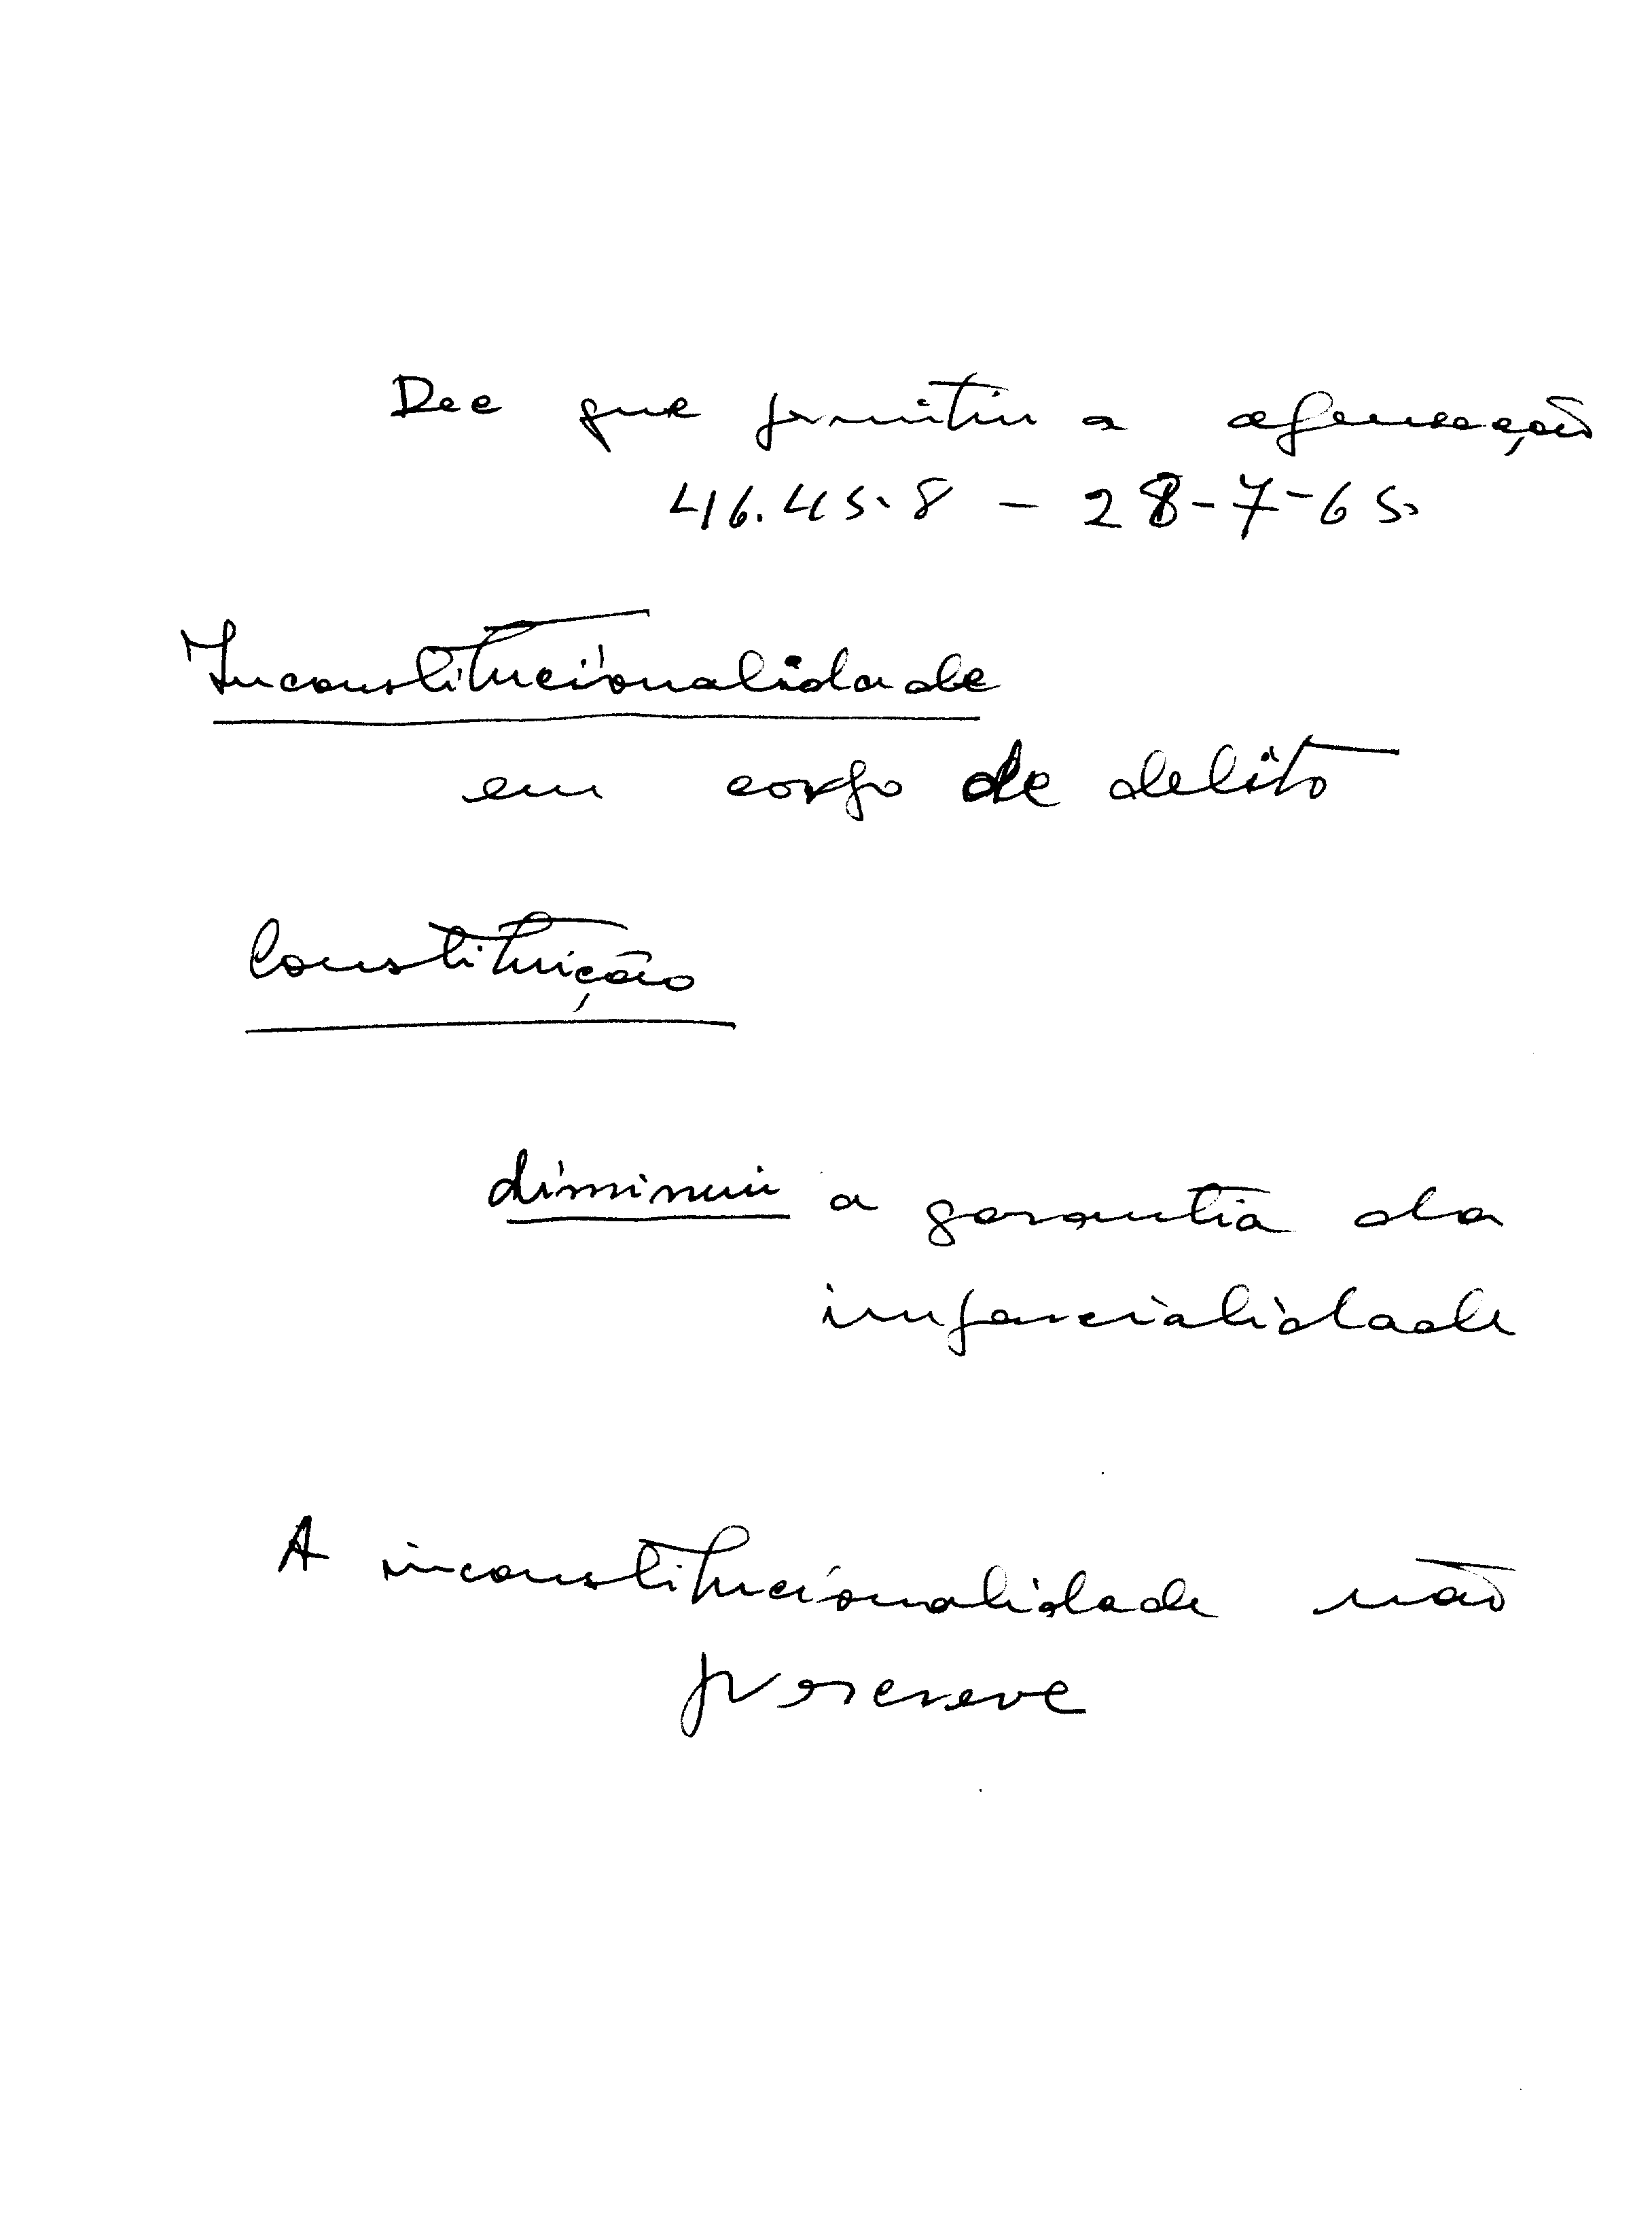 Dec que permitiu a apensação
46.45.8 - 28-7-65.
Inconstitucionalidade
em corpo de delito
Constituição
diminui a garantia da
imparcialidade
A inconstitucionalidade não
prescreve